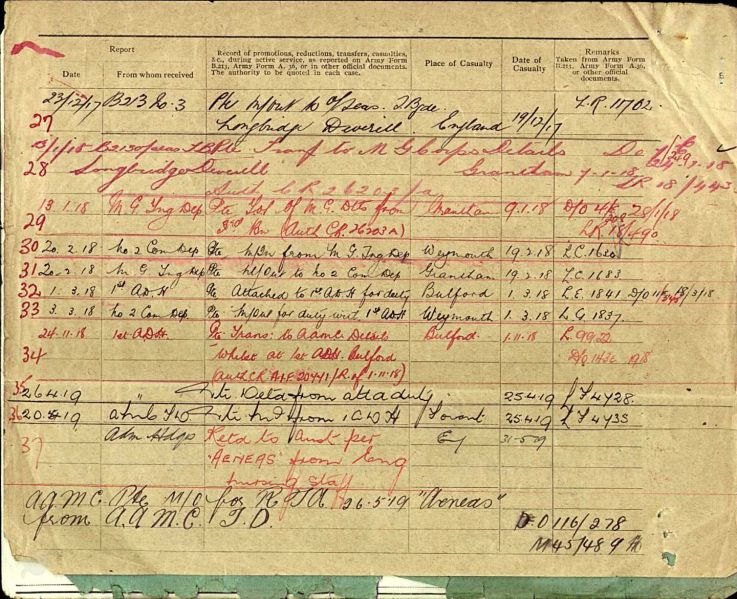 Report
Record of promotions, reductions, transfers, casualties, &c., during active service, as reported on Army Form B.213, Army Form A. 36, or in other official documents. The authority to be quoted in each case.
Place of Casualty
Date of Casualty
Remarks
Taken from Army Form B.213, Army Form A.36, or other official documents.
Date From whom received
23/12/17 B213 No. 3 Pte M/out to O/Seas. T. Bde. L.R. 11702.
27 Longbridge Deverill. England 19/12/17
B213 O/seas T. B. Pte Transf to M G Corps Details
28 Longbridge Deverill Grantham 7.1.18
Auth C R 26203/a
13.1.18 M.G. Tng Dep Pte M.G. Dtls from Grantham 9.1.18 28/1/18
29 3rd Bn Auth CR. 26203A) LR 18/490
30 20.2.18 No 2 Com Dep Pte M/In from M.G. Tng Dep Weymouth 19.2.18 L.C. 1620
31 20.2.18 M G Tng Dep Pte M/Out to No 2 Com Dep Grantham 19.2.18 L.C. 1683
32 1.3.18 1st A.D.H Pte Attached to 1st A D H for duty Bulford 1.3.18 L.E. 1841
33 3.3.18 No 2 Com Dep Pte M/out for duty with 1st ADH Weymouth 1.3.18 L G 1837.
24.11.18 1st A.D.H. Pte Trans: to A.A.M.C. Details Bulford. 1.11.18 L. 9922
34 Whilst at 1st A.D.H. Bulford
(Auth CR A.I.F 20441/R. of 1-11-18)
35 26.4.19 " Pte Detd from att duty 25.4.19 L F 4428.
36 A.A.M.C T.D Pte M/I from 1 A D H 25.4.19 L F 4435
37 Adm Hdqs Retd to Aust per Eng 31-5-19
"AENEAS" from Eng
nursing staff
A.A.M.C. Pte M/O for R T A 26-5-19 "Aeneas"
from A.A.M.C. T.D. D O 116/278
M45/489